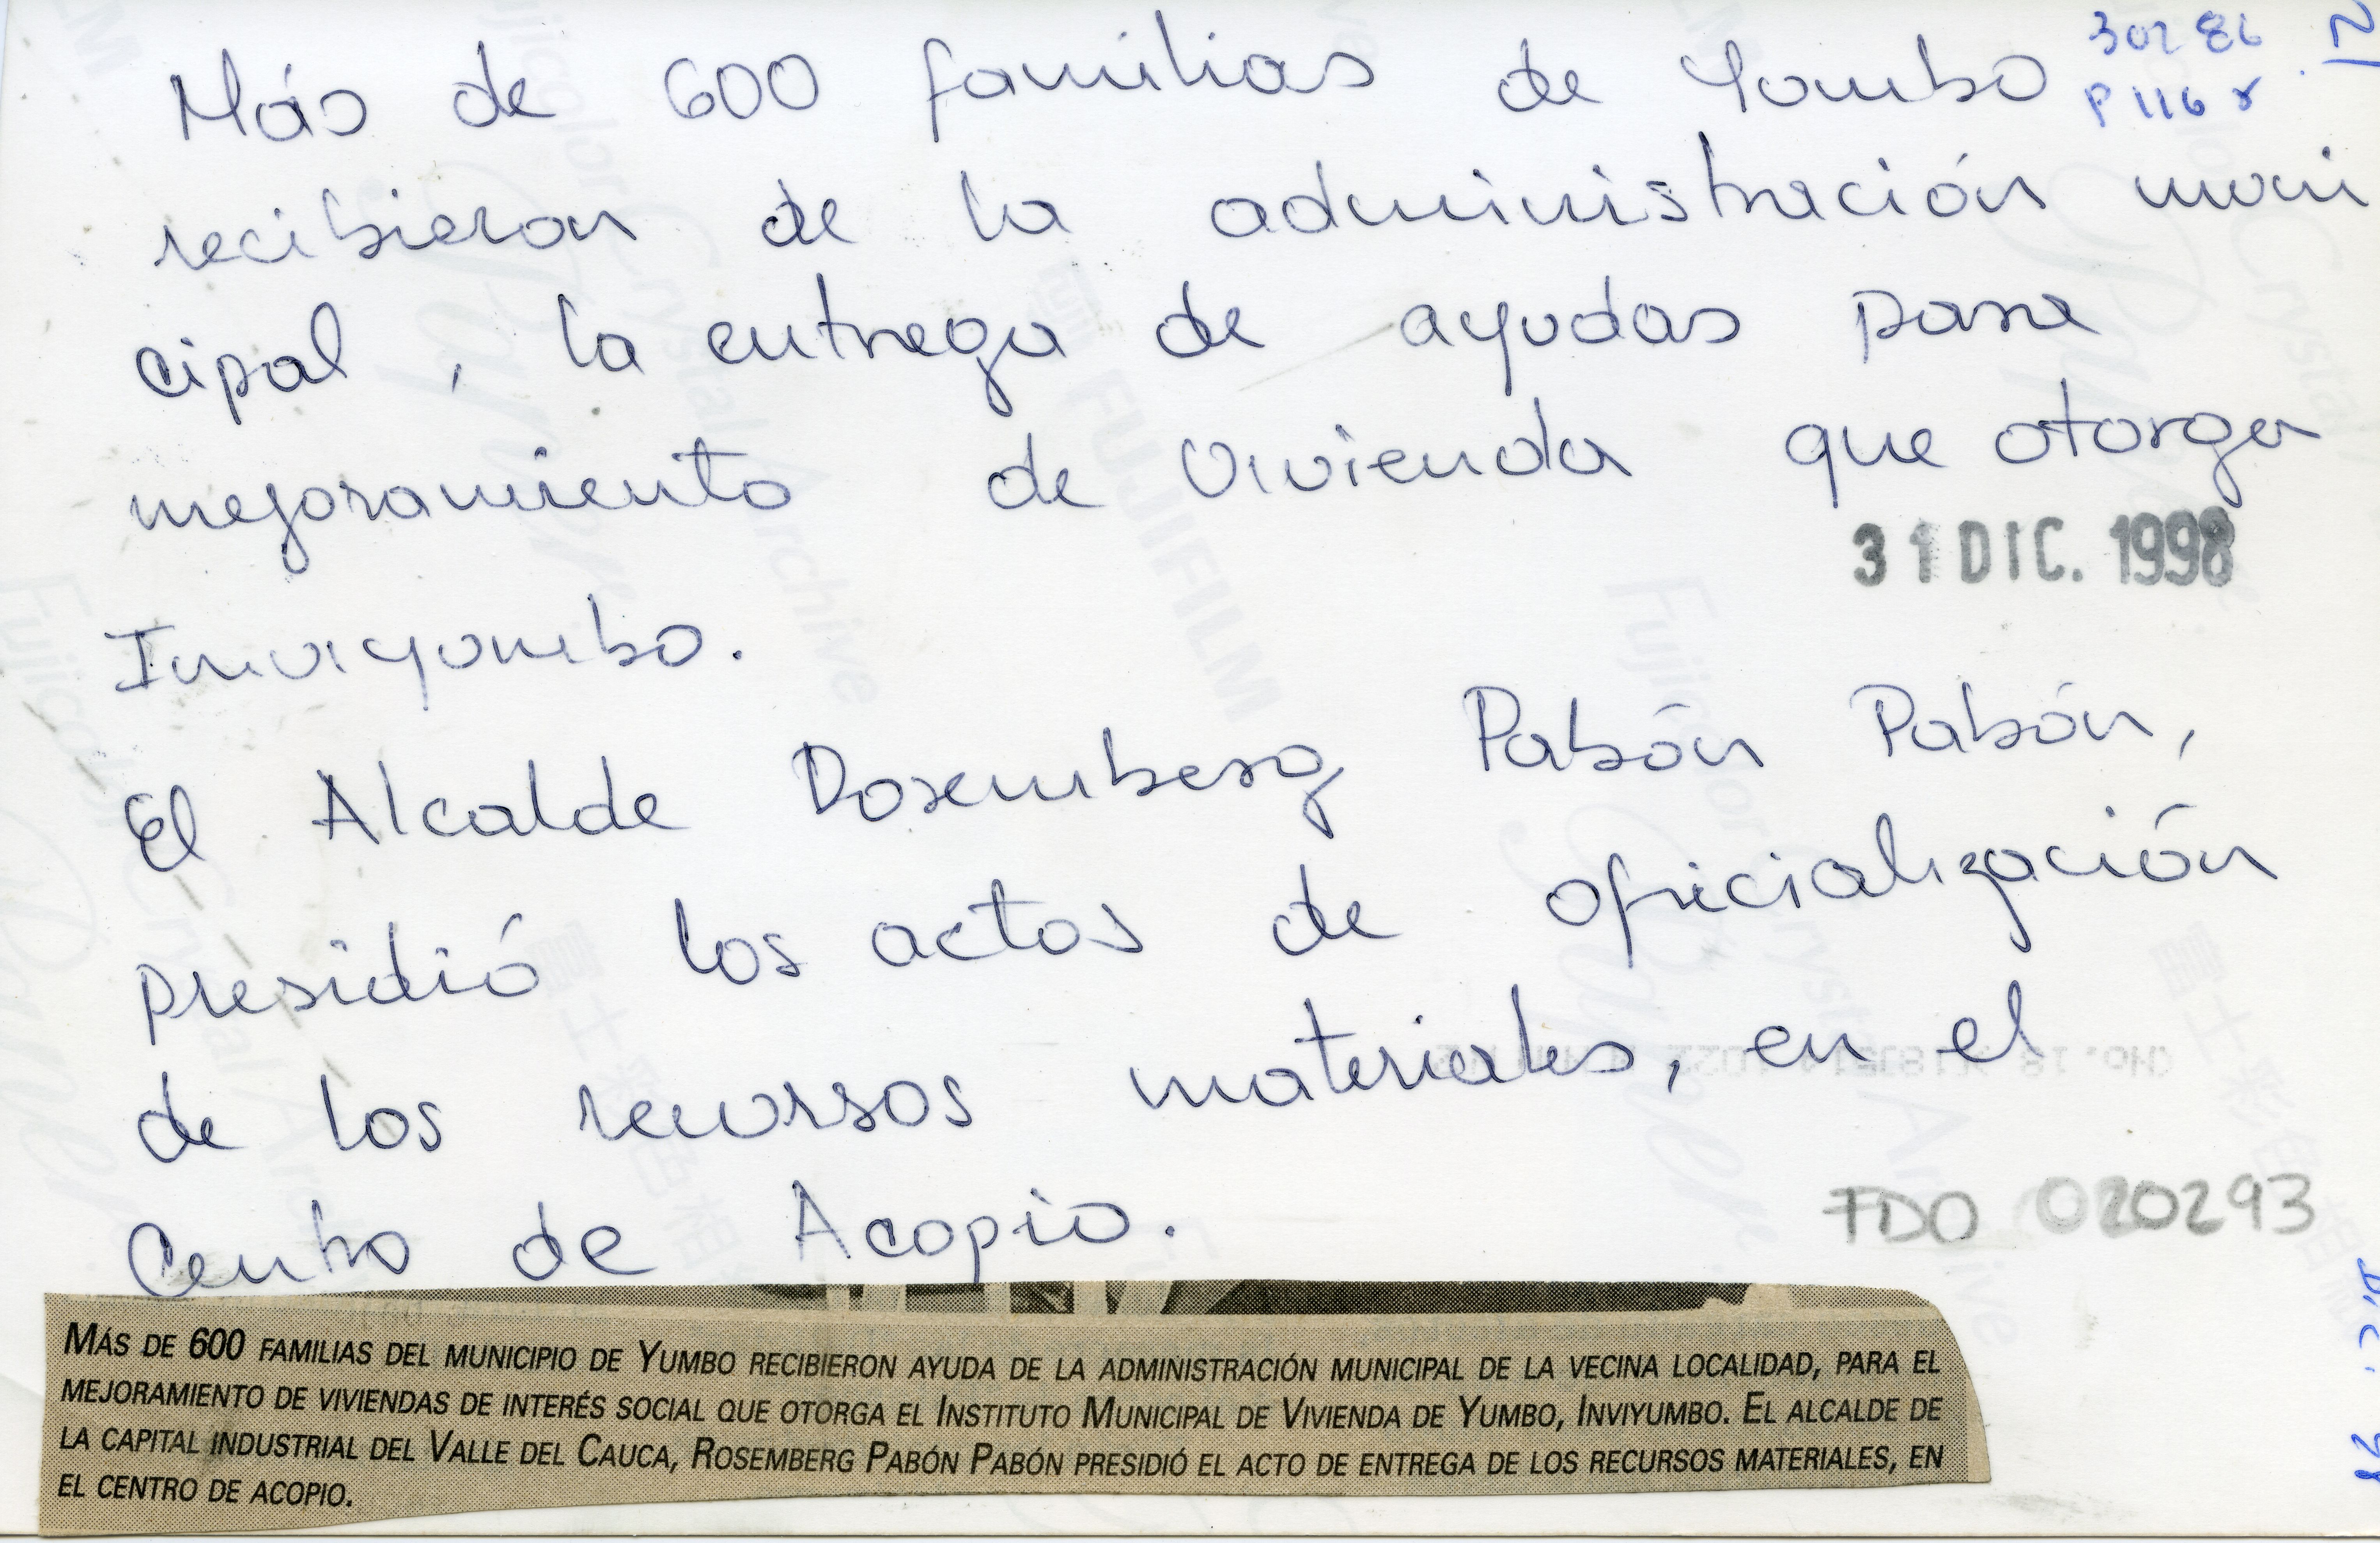 Más de 600 familias de Yumbo
30286
P 116 r
recibieron de la administración muni
cipal, la entrega de ayudas para
mejoramiento de Vivienda que otorga
31 DIC. 1998
Inviyumbo.
El Alcalde Rosemberg Pabón Pabón,
presidió los actos de oficialización
de los recursos materiales, en el
Centro de Acopio.
FDO 020293
MÁS DE 600 FAMILIAS DEL MUNICIPIO DE YUMBO RECIBIERON AYUDA DE LA ADMINISTRACIÓN MUNICIPAL DE LA VECINA LOCALIDAD, PARA EL
MEJORAMIENTO DE VIVIENDAS DE INTERÉS SOCIAL QUE OTORGA EL INSTITUTO MUNICIPAL DE VIVIENDA DE YUMBO, INVIYUMBO. EL ALCALDE DE
LA CAPITAL INDUSTRIAL DEL VALLE DEL CAUCA, ROSEMBERG PABÓN PABÓN PRESIDIÓ EL ACTO DE ENTREGA DE LOS RECURSOS MATERIALES, EN
EL CENTRO DE ACOPIO.
FUJIFILM
Fujicolor Crystal Archive
Paper